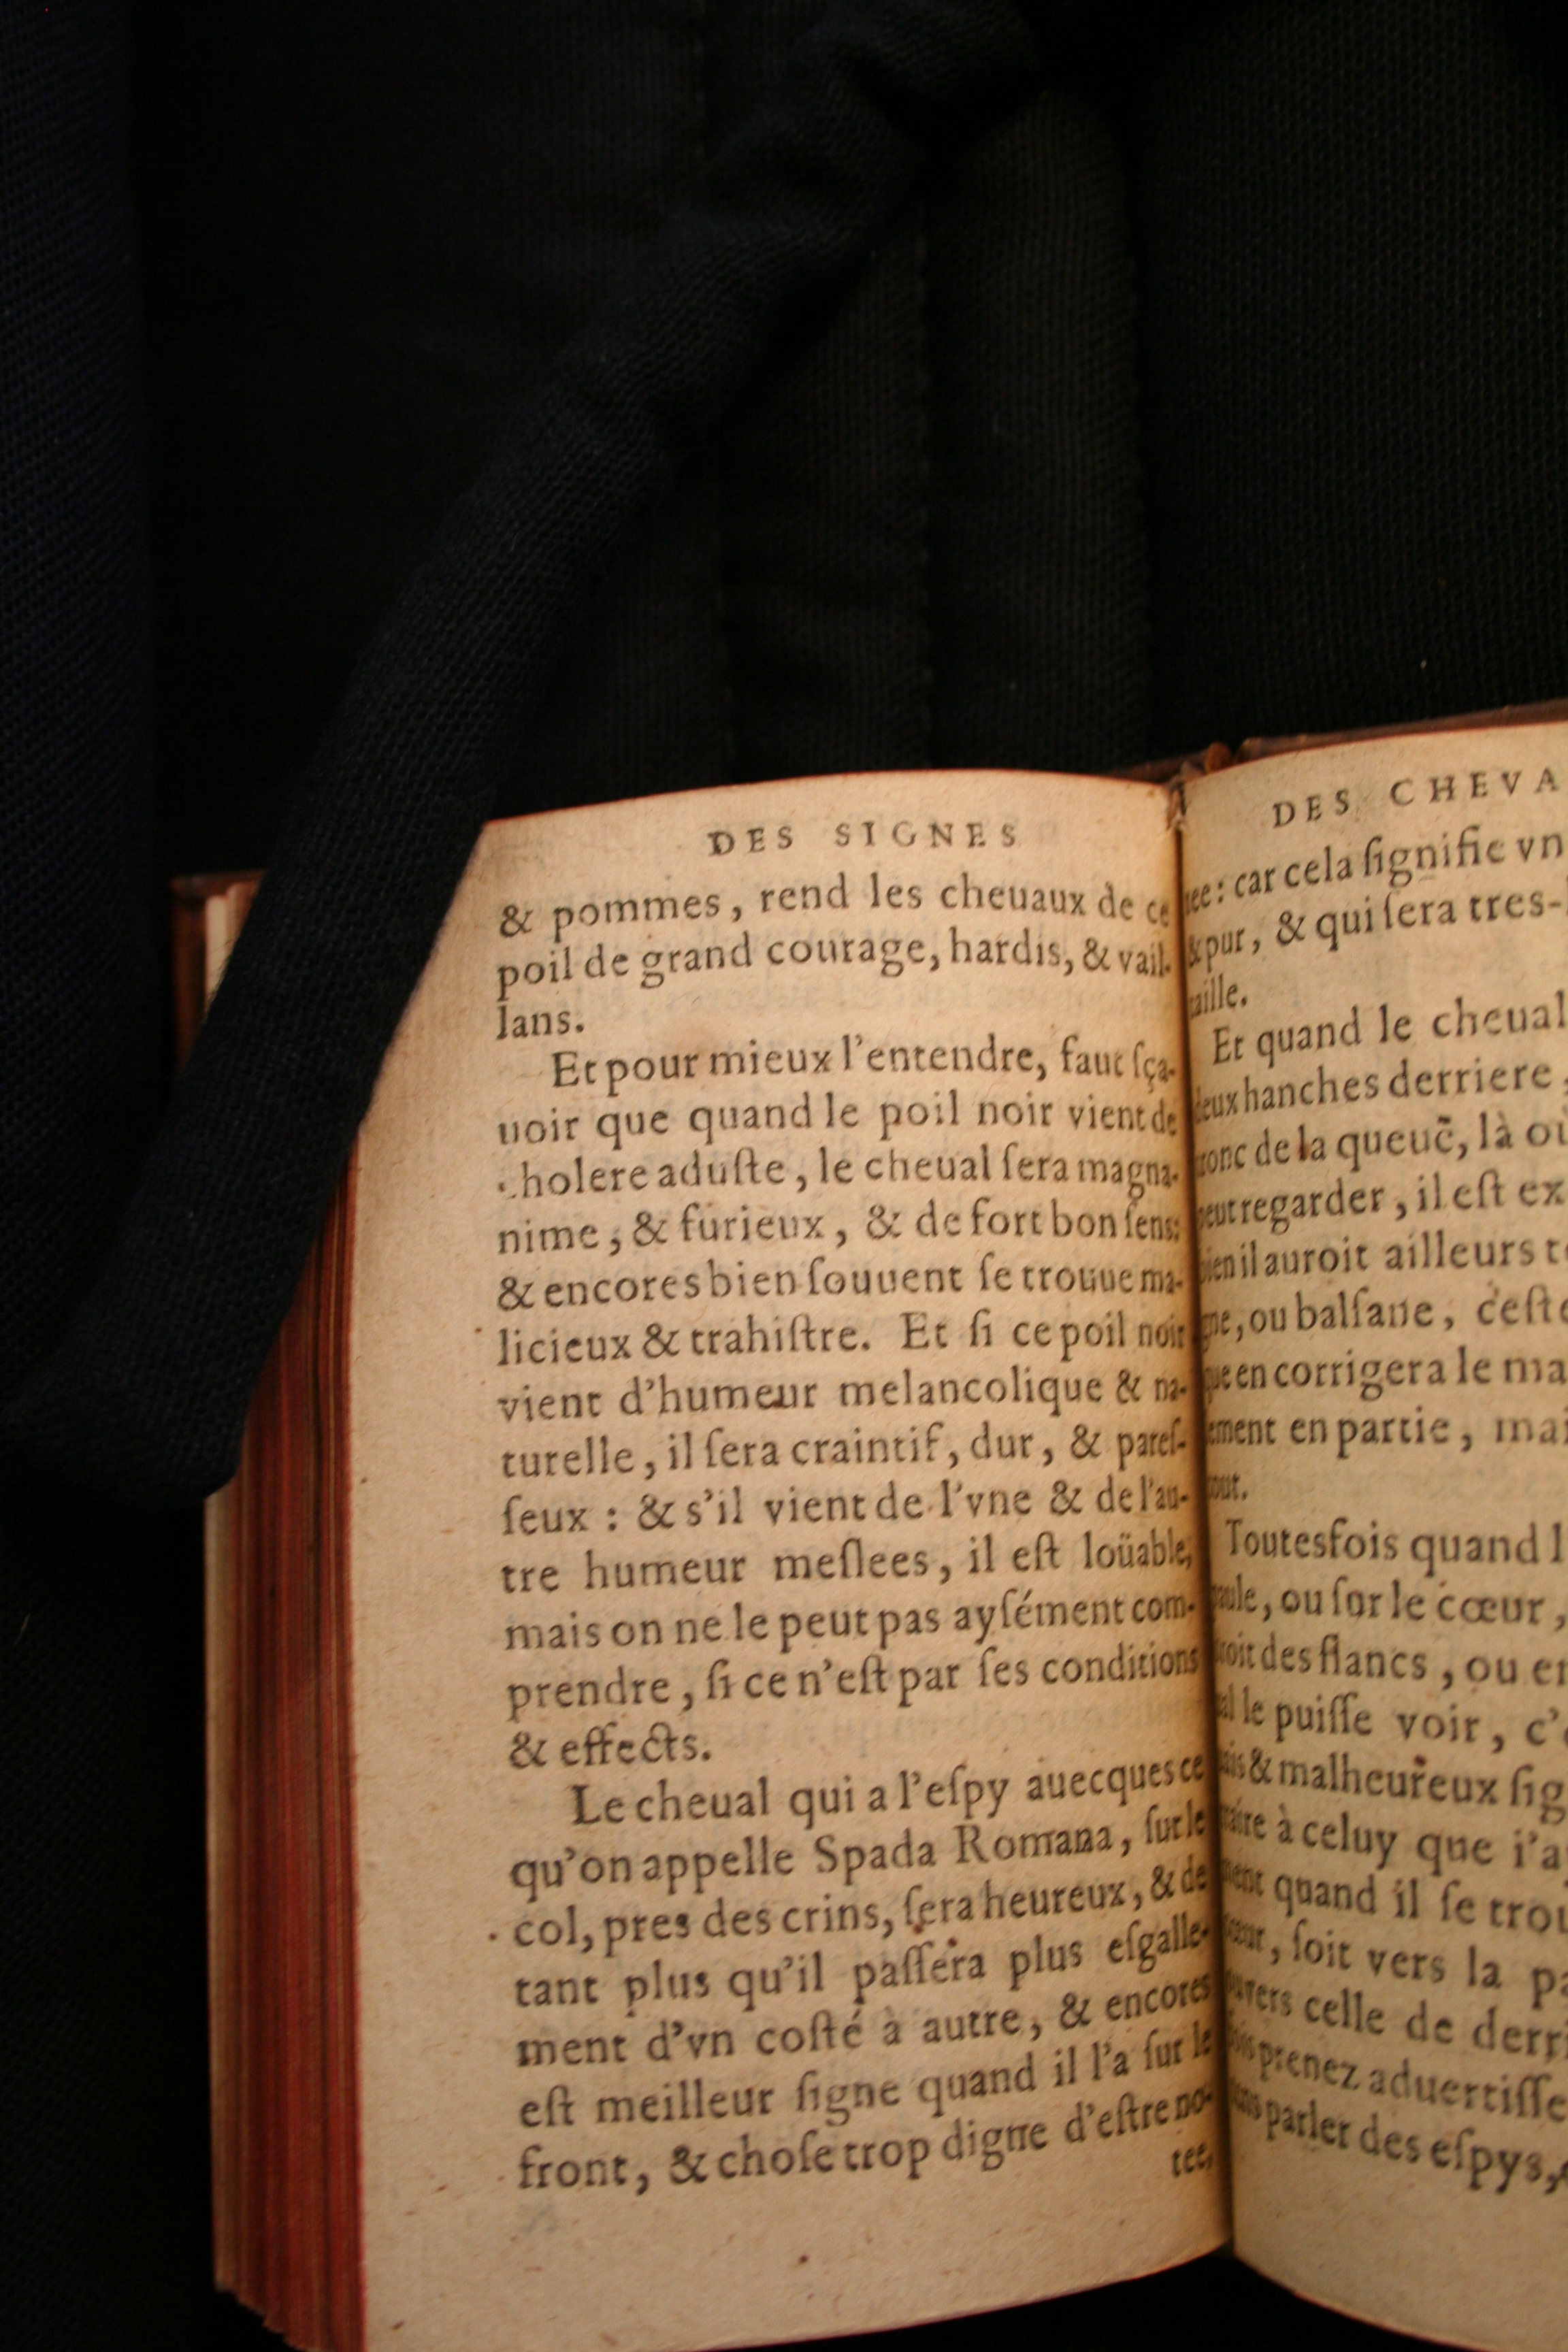 DES SIGNES
& pommes, rend les cheuaux de ce
poil de grand courage, hardis, & vail-
lans.
Et pour mieux l'entendre, faut ſça-
uoir que quand le poil noir vient de
cholere aduſte, le cheual ſera magna-
nime, & furieux, & de fort bon ſens:
& encores bien ſouuent ſe trouue ma-
licieux & trahiſtre. Et ſi ce poil noir
vient d'humeur melancolique & na-
turelle, il ſera craintif, dur, & pareſ-
ſeux : & s'il vient de l'vne & de l'au-
tre humeur meſlees, il eſt loüable,
mais on ne le peut pas ayſément com-
prendre, ſi ce n'eſt par ſes conditions
& effects.
Le cheual qui a l'eſpy auecques ce
qu'on appelle Spada Romana, ſur le
col, pres des crins, ſera heureux, & de
tant plus qu'il paſſera plus eſgalle-
ment d'vn coſté à autre, & encores
eſt meilleur ſigne quand il l'a ſur le
front, & choſe trop digne d'eſtre no-
tee,
DES CHEVA
tee: car cela ſignifie vn
& pur, & qui ſera tres-
taille.
Et quand le cheual
deux hanches derriere,
tronc de la queuë, là ou
peut regarder, il eſt ex
bien il auroit ailleurs
gne, ou balſane, c'eſt
que en corrigera le ma
ement en partie, mai
tout.
Toutesfois quand l
paule, ou ſur le cœur,
droit des flancs, ou en
ual le puiſſe voir, c'
uais & malheureux ſig
traire à celuy que i'a
ment quand il ſe trou
cœur, ſoit vers la pa
ou vers celle de derri
prenez aduertiſſe
parler des eſpys,